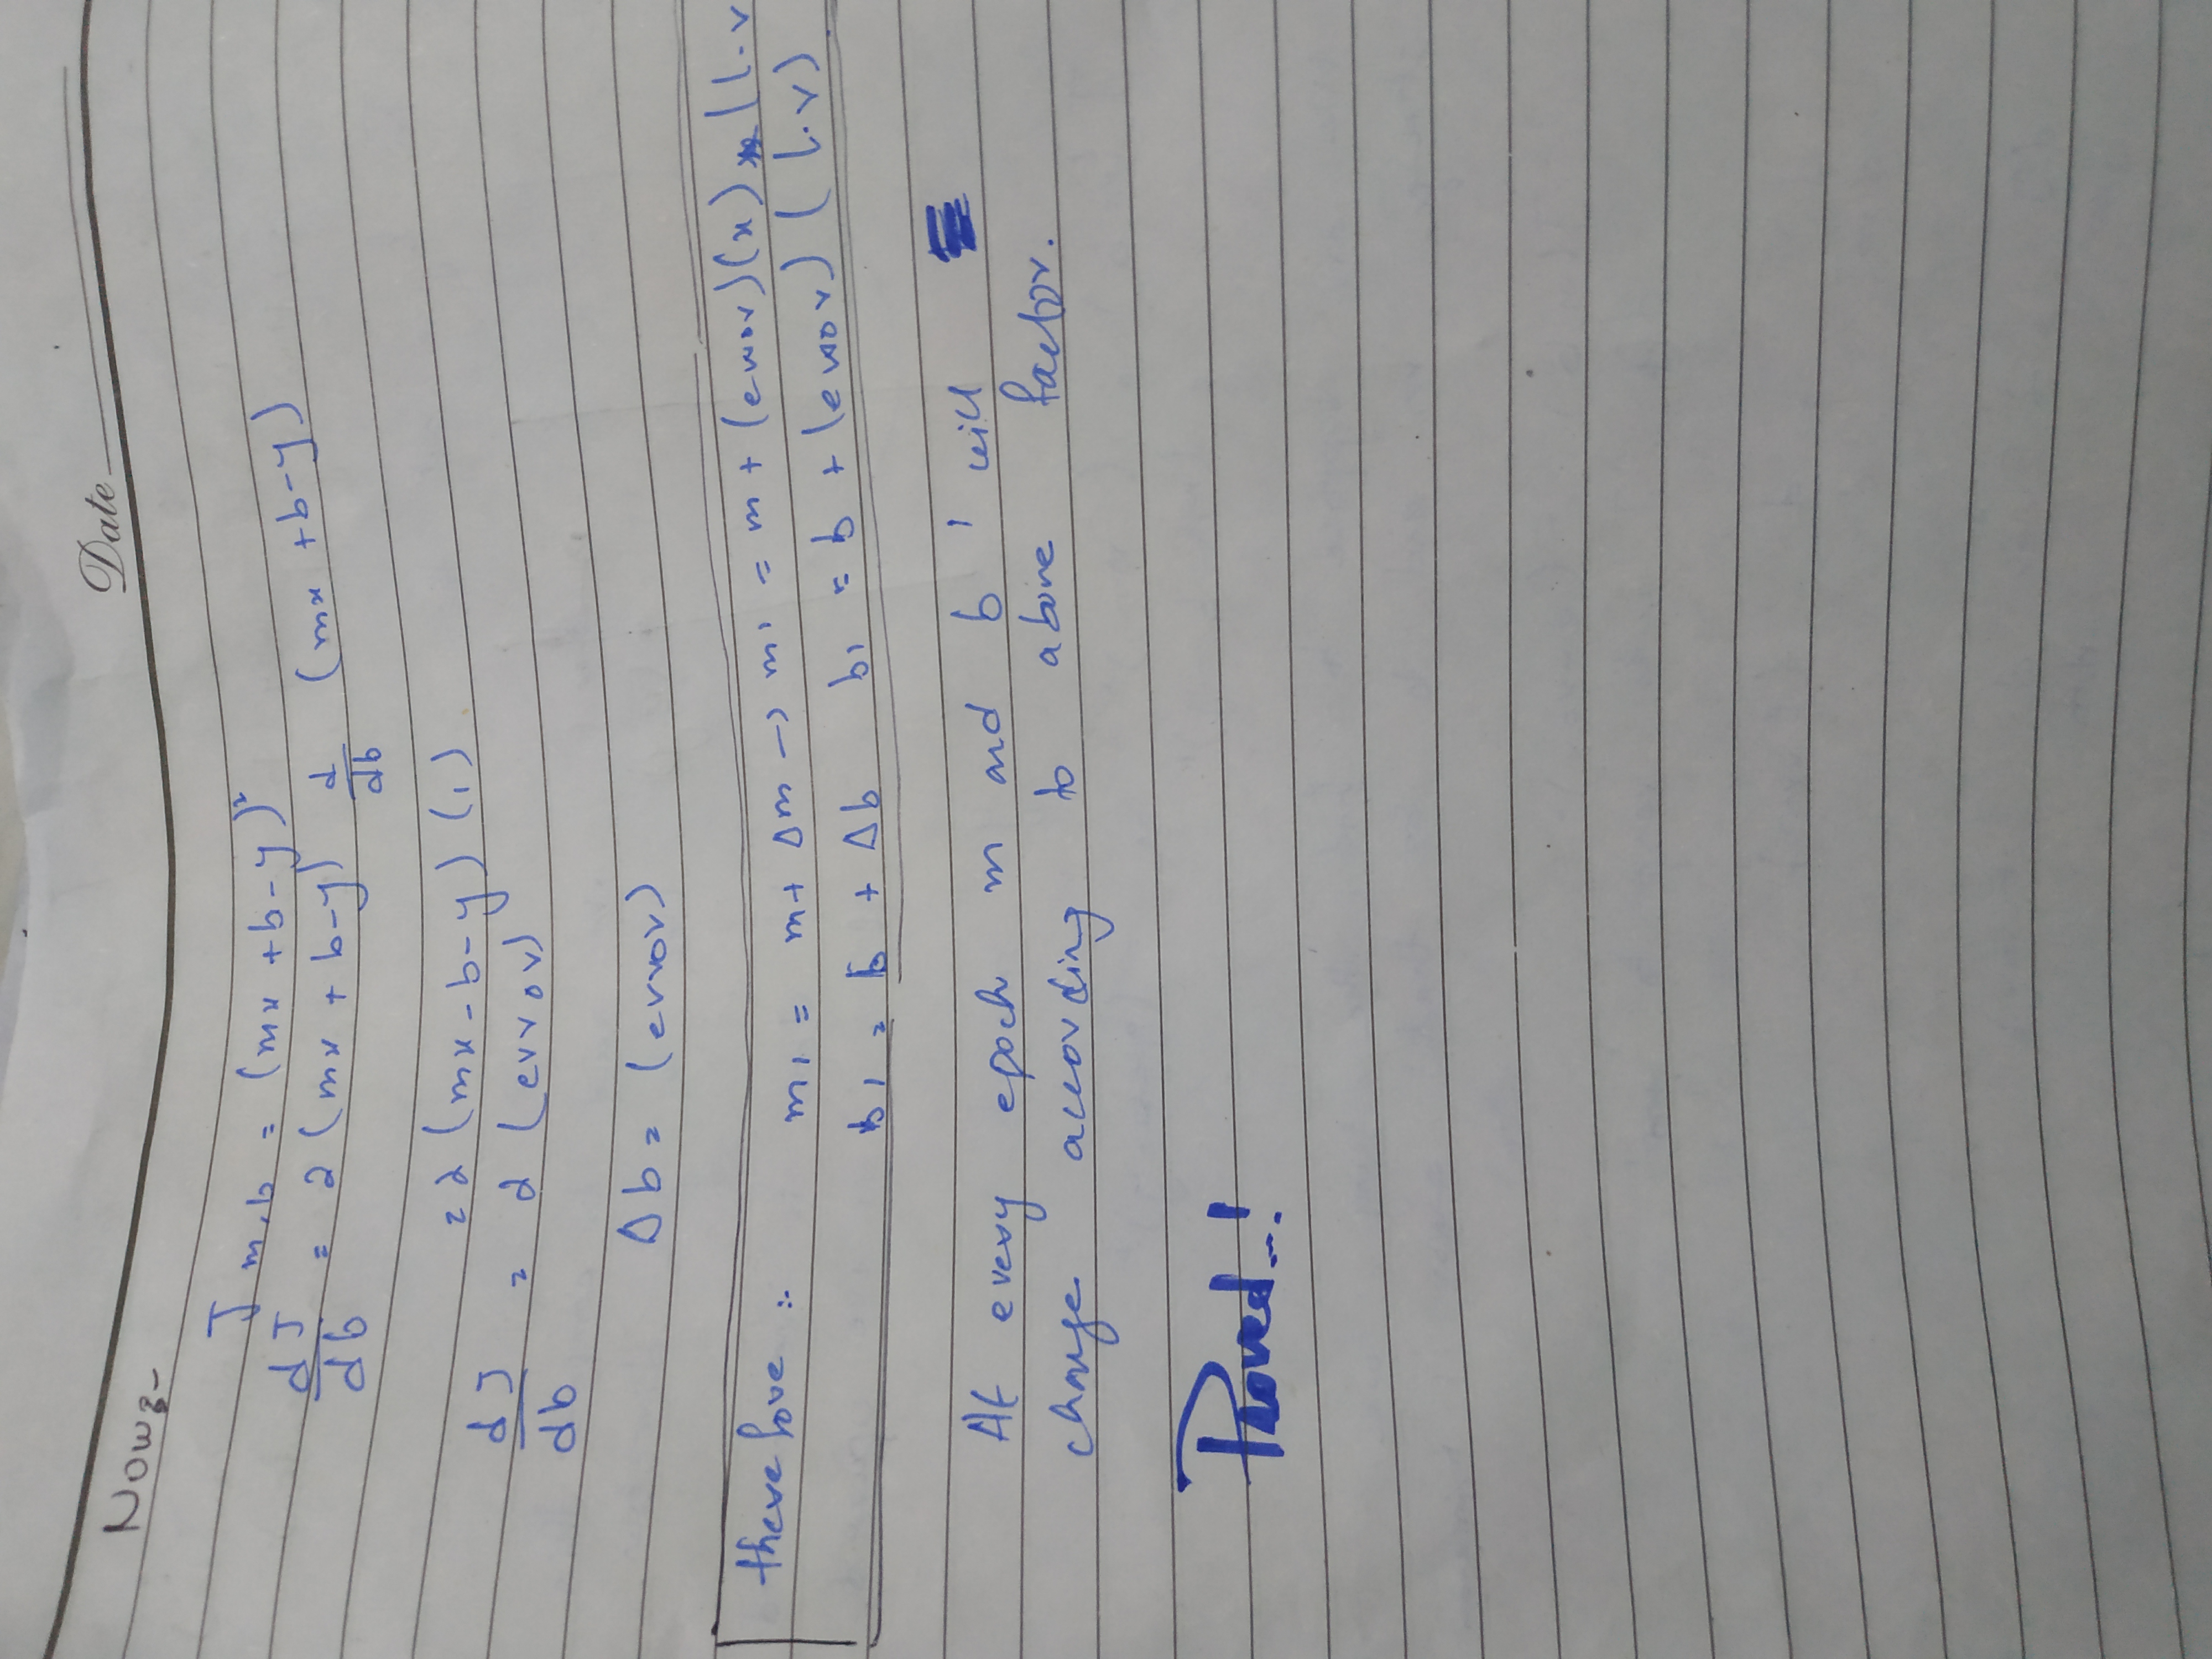 Date
Now:-
J m,b = (mx + b - y)²
dJ/db = 2 (mx + b - y) d/db (mx + b - y)
= 2 (mx - b - y) (1)
dJ/db = 2 (error)
Δb = (error)
therefore :- m1 = m + Δm → m1 = m + (error)(x) (L.r
b1 = b + Δb b1 = b + (error) (L.r)
At every epoch m and b 1 will
change according to above factor.
Proved...!